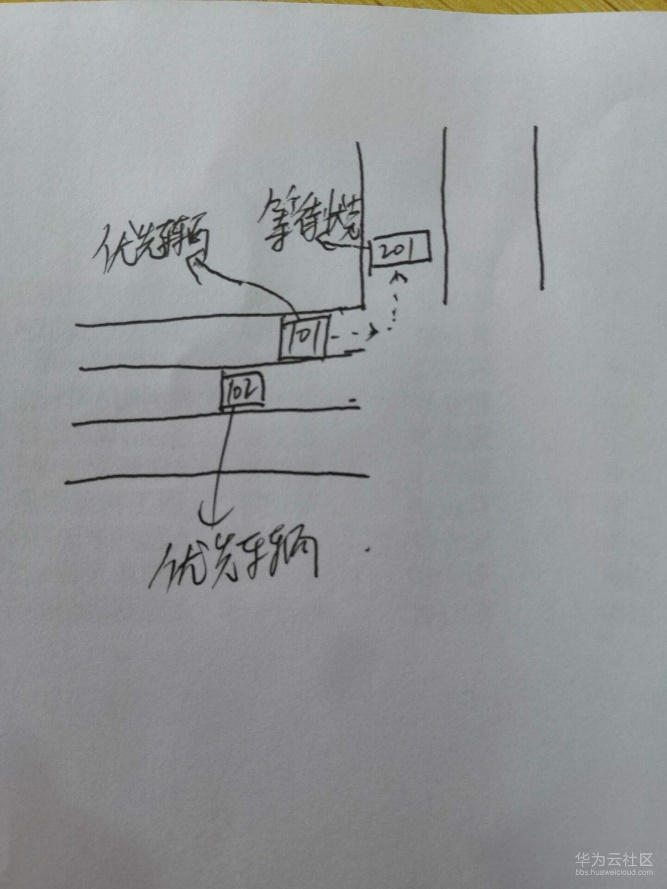 优先车辆
等待状态
201
101
102
优先车辆
华为云社区
bbs.huaweicloud.com